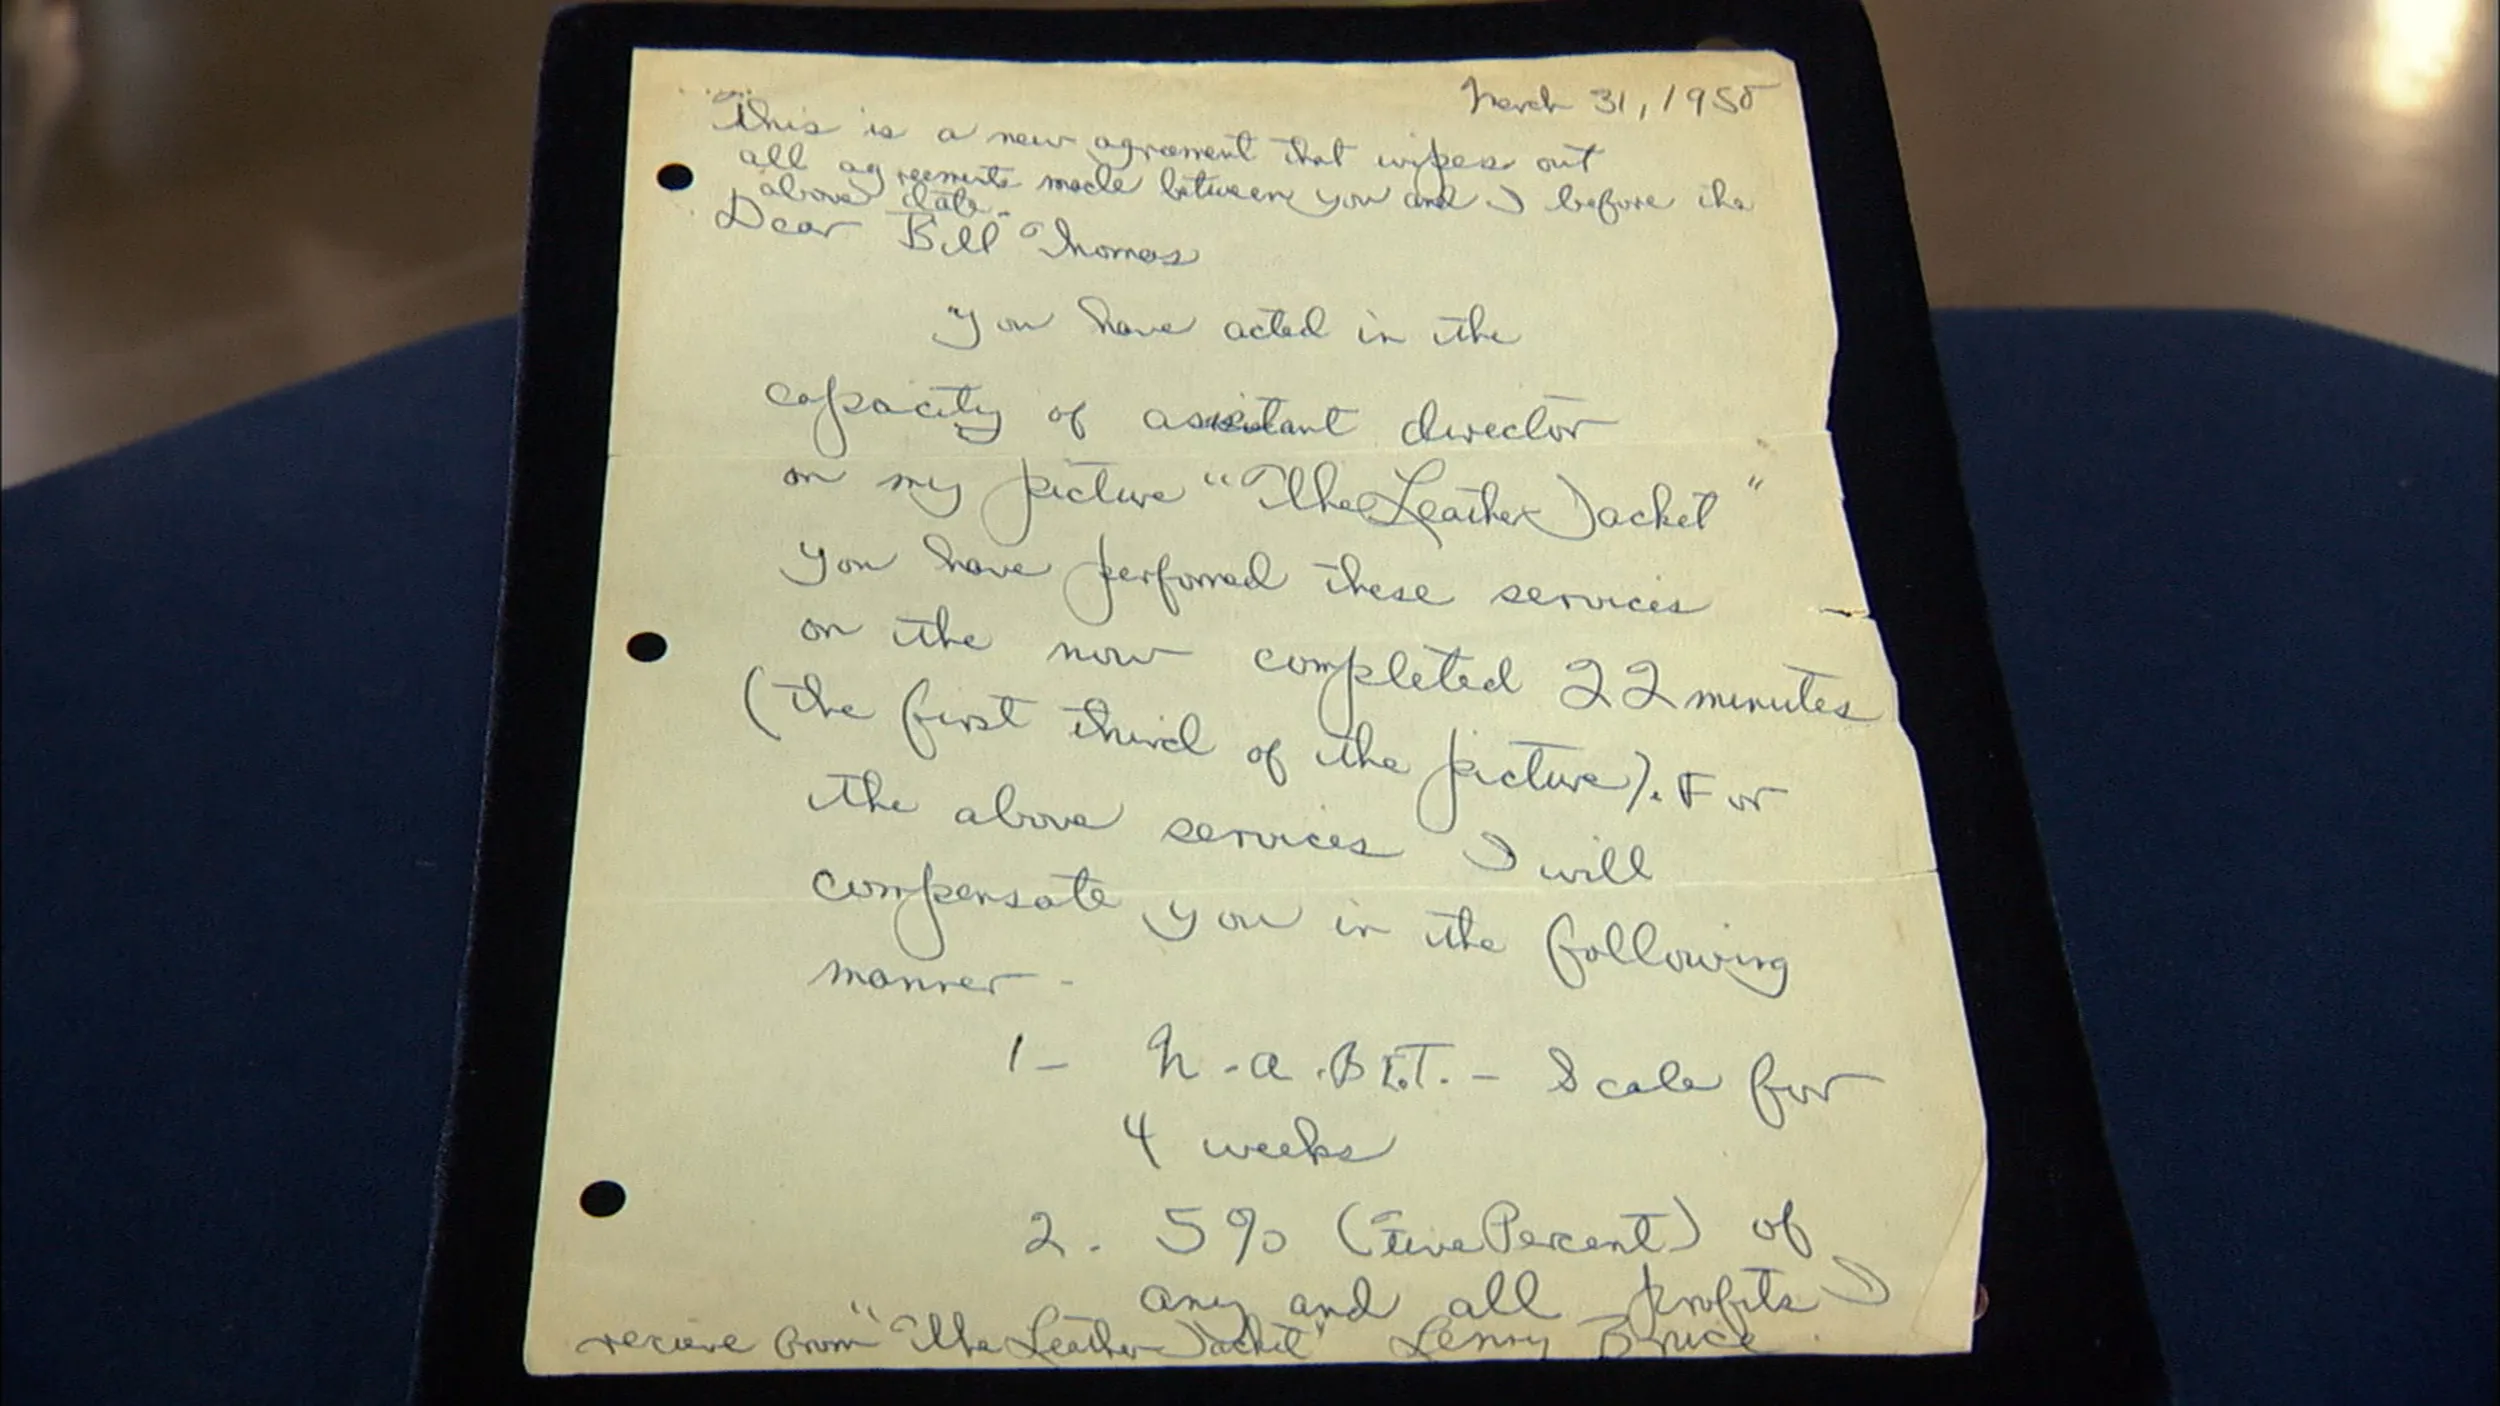 March 31, 1955
This is a new agreement that wipes out
all agreements made between you and I before the
above date.
Dear Bill Thomas
You have acted in the
capacity of assistant director
on my picture "The Leather Jacket"
you have performed these services
on the now completed 22 minutes
(the first third of the picture). For
the above services I will
compensate you in the following
manner -
1 - N.A.B.E.T. - Scale for
4 weeks
2. 5% (Five Percent) of
any and all profits I
recieve from "The Leather Jacket" Lenny Bruce